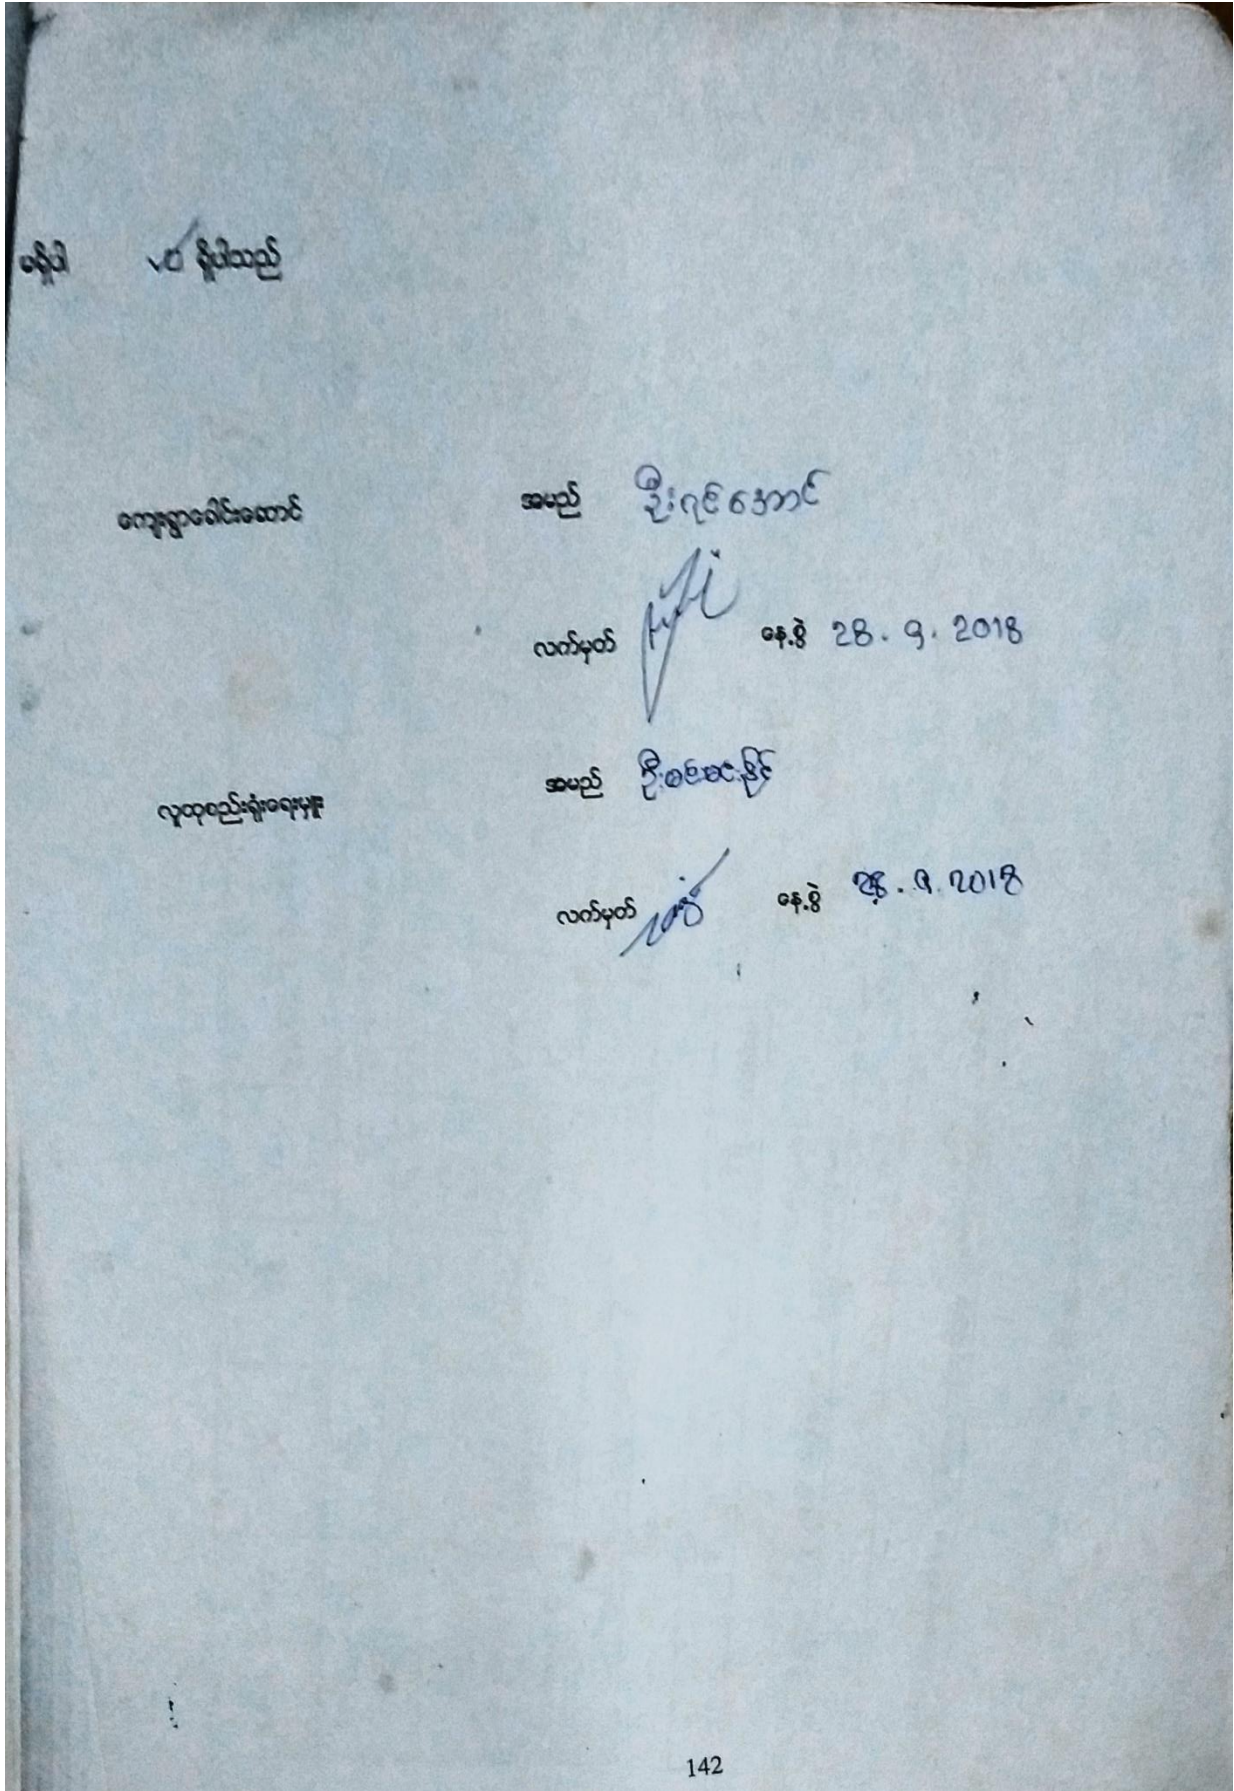 မရှိပါ ရှိပါသည်
ကျေးရွာခေါင်းဆောင် အမည် ဦးဂင်အောင်
လက်မှတ် နေ့စွဲ 28. 9. 2018
လူထုစည်းရုံးရေးမှူး အမည်
လက်မှတ် နေ့စွဲ 28. 9. 2018
142